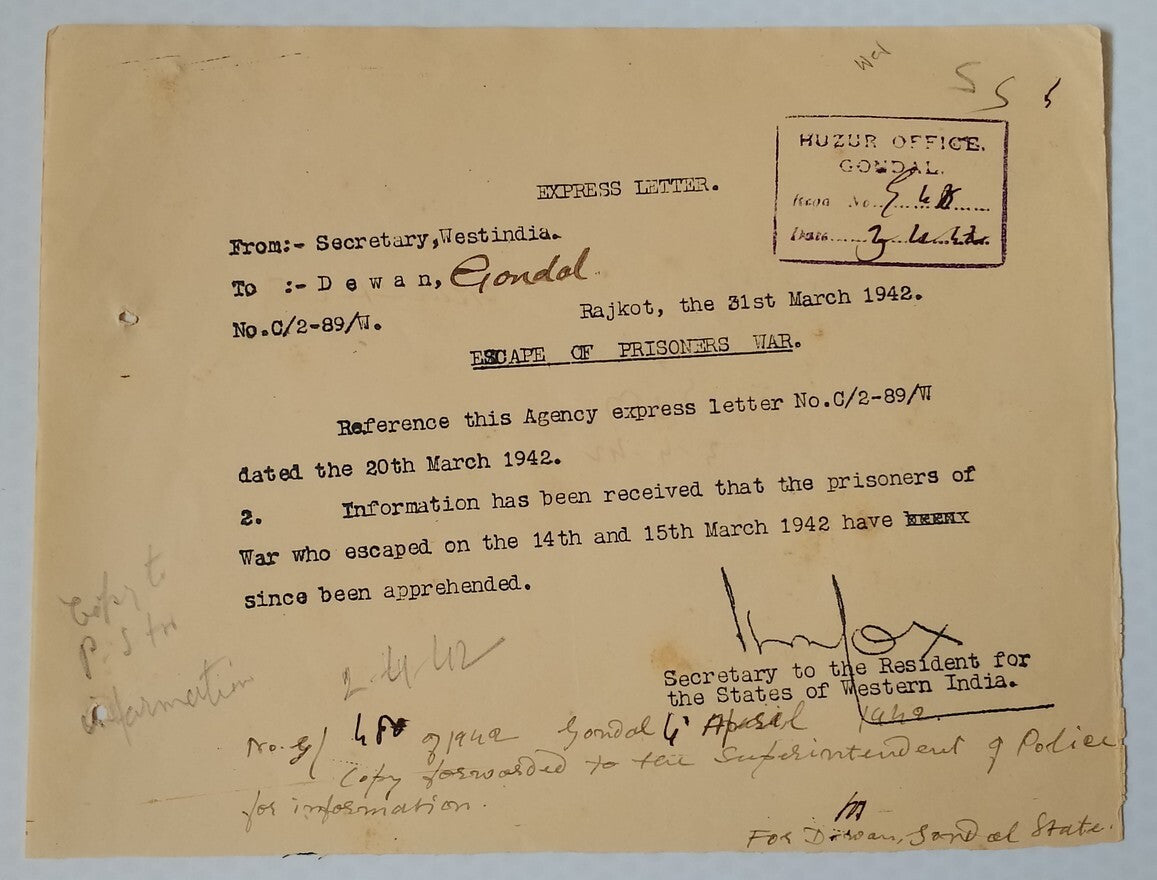 HUZUR OFFICE.
GONDAL.
No.
Date
EXPRESS LETTER.
From:- Secretary,Westindia.
To :- D e w a n, Gondal
Rajkot, the 31st March 1942.
No.C/2-89/W.
ESCAPE OF PRISONERS WAR.
Reference this Agency express letter No.C/2-89/W
dated the 20th March 1942.
2. Information has been received that the prisoners of
War who escaped on the 14th and 15th March 1942 have
since been apprehended.
Secretary to the Resident for
the States of Western India.
Copy to
P.S for
information
2-4-42
of 1942 Gondal April 1942.
Copy forwarded to the Superintendent of Police
for information.
For Dewan, Gondal State.